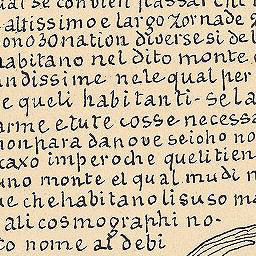 ual se convien passar chi
altissimo e largo zornade
ono 30 nation diverse si de
habitano nel dito monte
andissime nele qual per
e queli habitanti se la
arme e tute cosse necessa
non para danove seioho no
caxo imperoche queli tien
uno monte el qual mudi n
ue che habitano li suso ma
ali cosmographi no-
co nome al debi